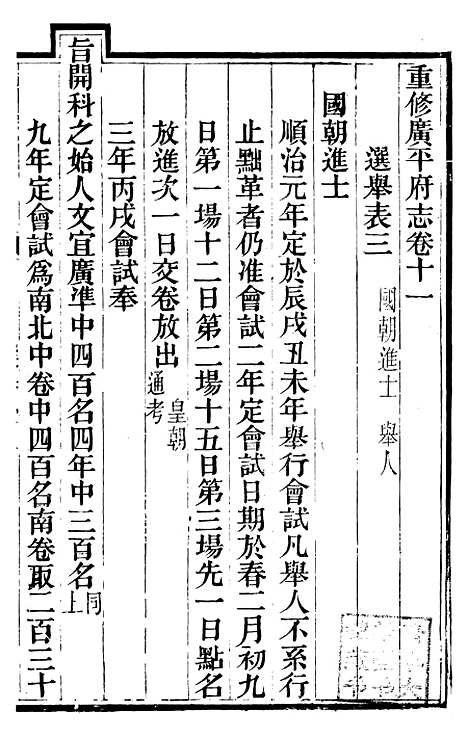 重修廣平府志卷十一
選舉表三 國朝進士 舉人
國朝進士
順治元年定於辰戌丑未年舉行會試凡舉人不系行
止黜革者仍准會試二年定會試日期於春二月初九
日第一場十二日第二場十五日第三場先一日點名
放進次一日交卷放出皇朝通考
三年丙戌會試奉
旨開科之始人文宜廣準中四百名四年中三百名同上
九年定會試爲南北中卷中四百名南卷取二百三十